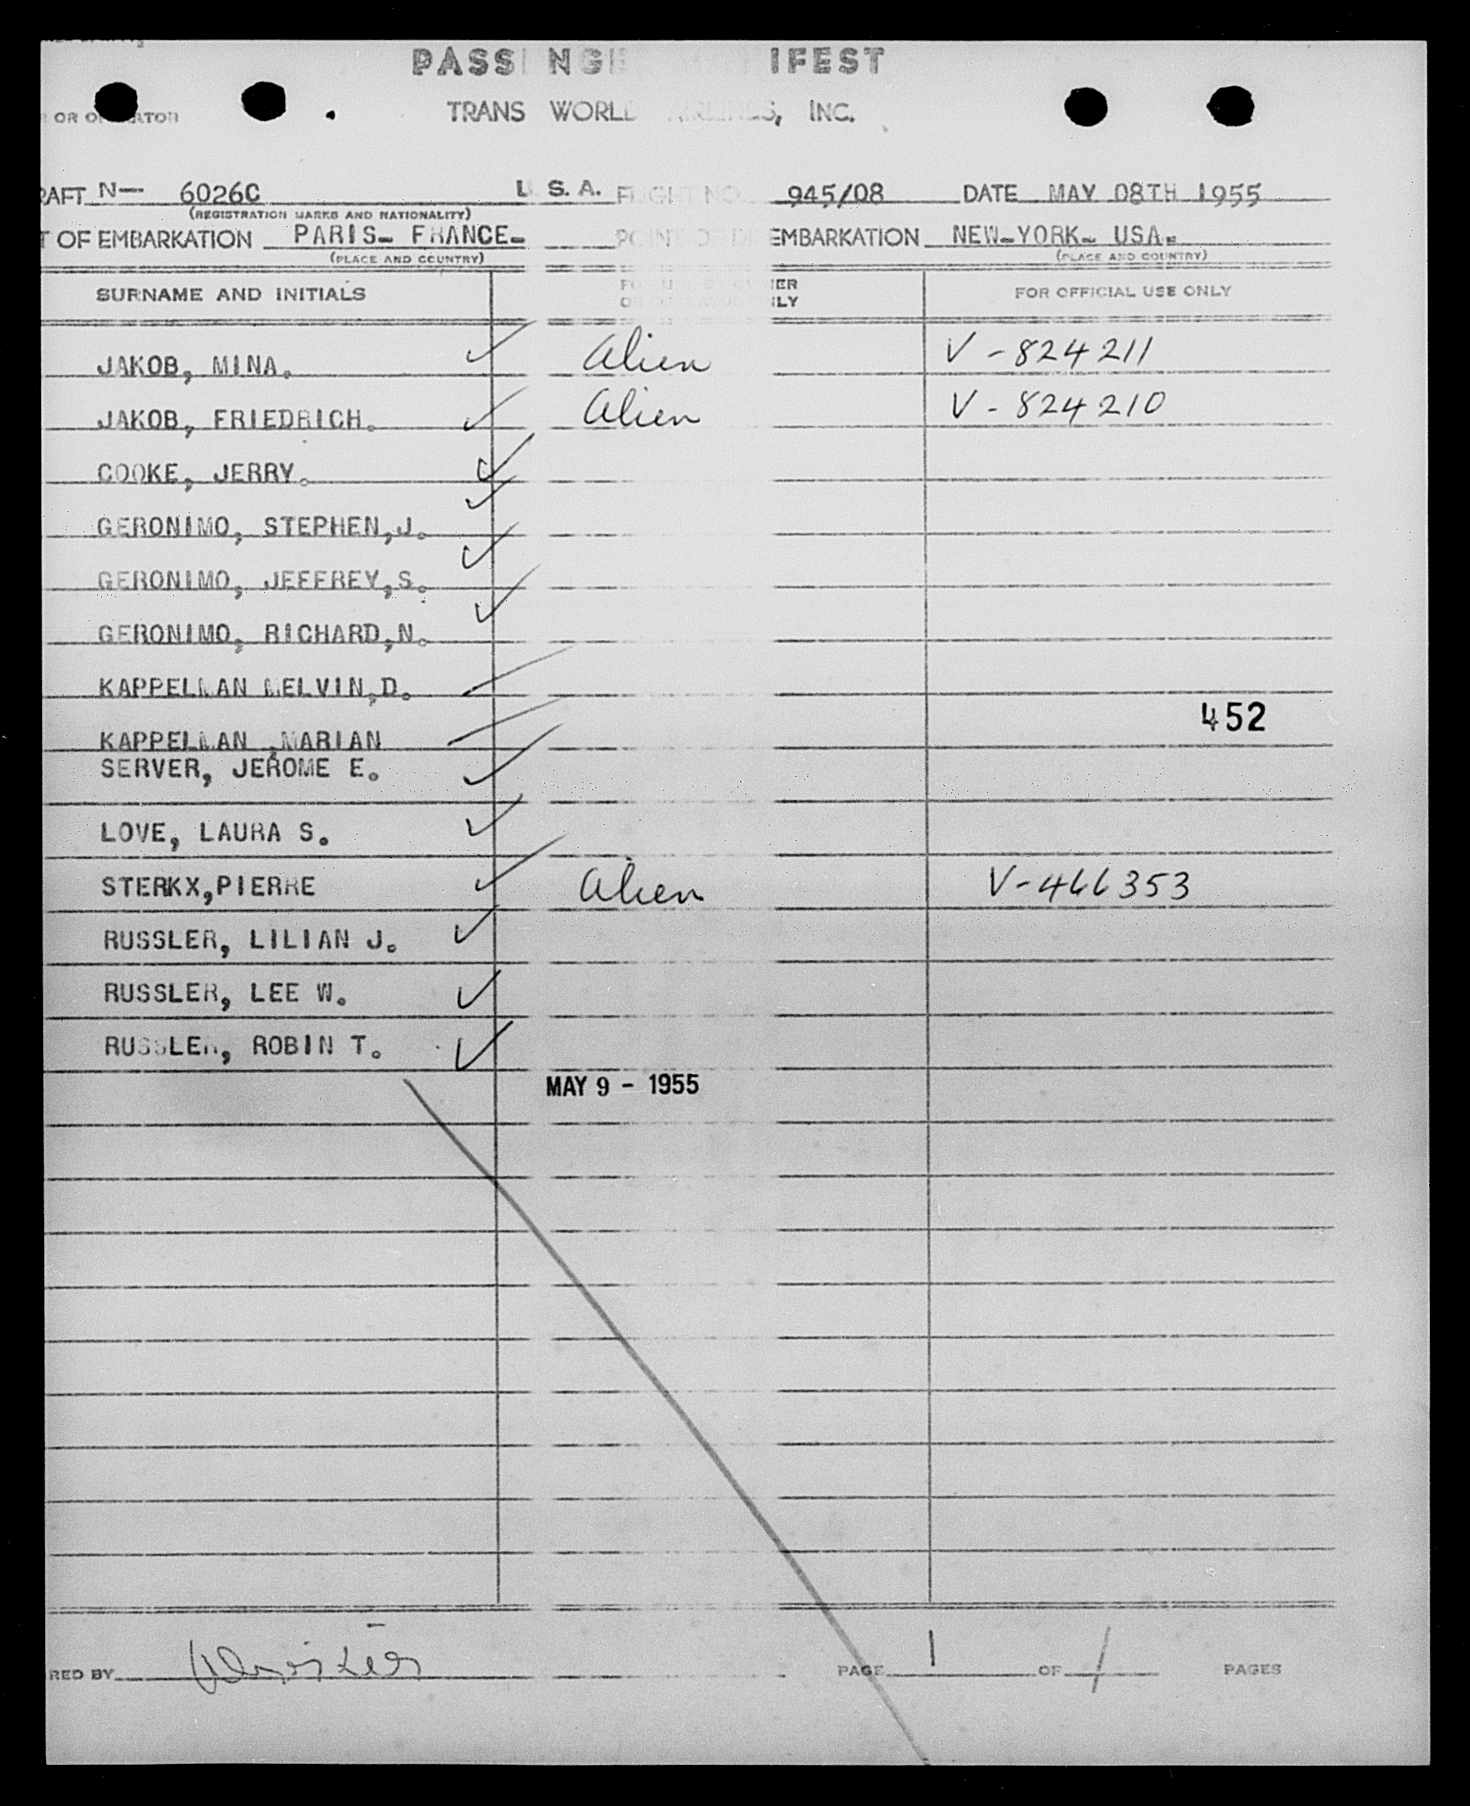 PASS NGE IFEST
TRANS WORLD AIRLINES, INC.
OR OPERATOR
RAFT N— 6026C U.S.A. FLIGHT NO. 945/08 DATE MAY 08TH 1955
(REGISTRATION MARKS AND NATIONALITY)
T OF EMBARKATION PARIS- FRANCE- POINT OF DISEMBARKATION NEW-YORK- USA-
(PLACE AND COUNTRY) (PLACE AND COUNTRY)
SURNAME AND INITIALS FOR USE BY OWNER OR OPERATOR ONLY FOR OFFICIAL USE ONLY
JAKOB, MINA. ✓ Alien V-824211
JAKOB, FRIEDRICH. ✓ Alien V-824210
COOKE, JERRY. ✓
GERONIMO, STEPHEN,J. ✓
GERONIMO, JEFFREY,S. ✓
GERONIMO, RICHARD,N. ✓
KAPPELMAN MELVIN,D.
452
KAPPELMAN ,MARIAN
SERVER, JEROME E. ✓
LOVE, LAURA S. ✓
STERKX,PIERRE ✓ Alien V-466353
RUSSLER, LILIAN J. ✓
RUSSLER, LEE W. ✓
RUSSLER, ROBIN T. ✓
MAY 9 - 1955
RED BY PAGE 1 OF 1 PAGES